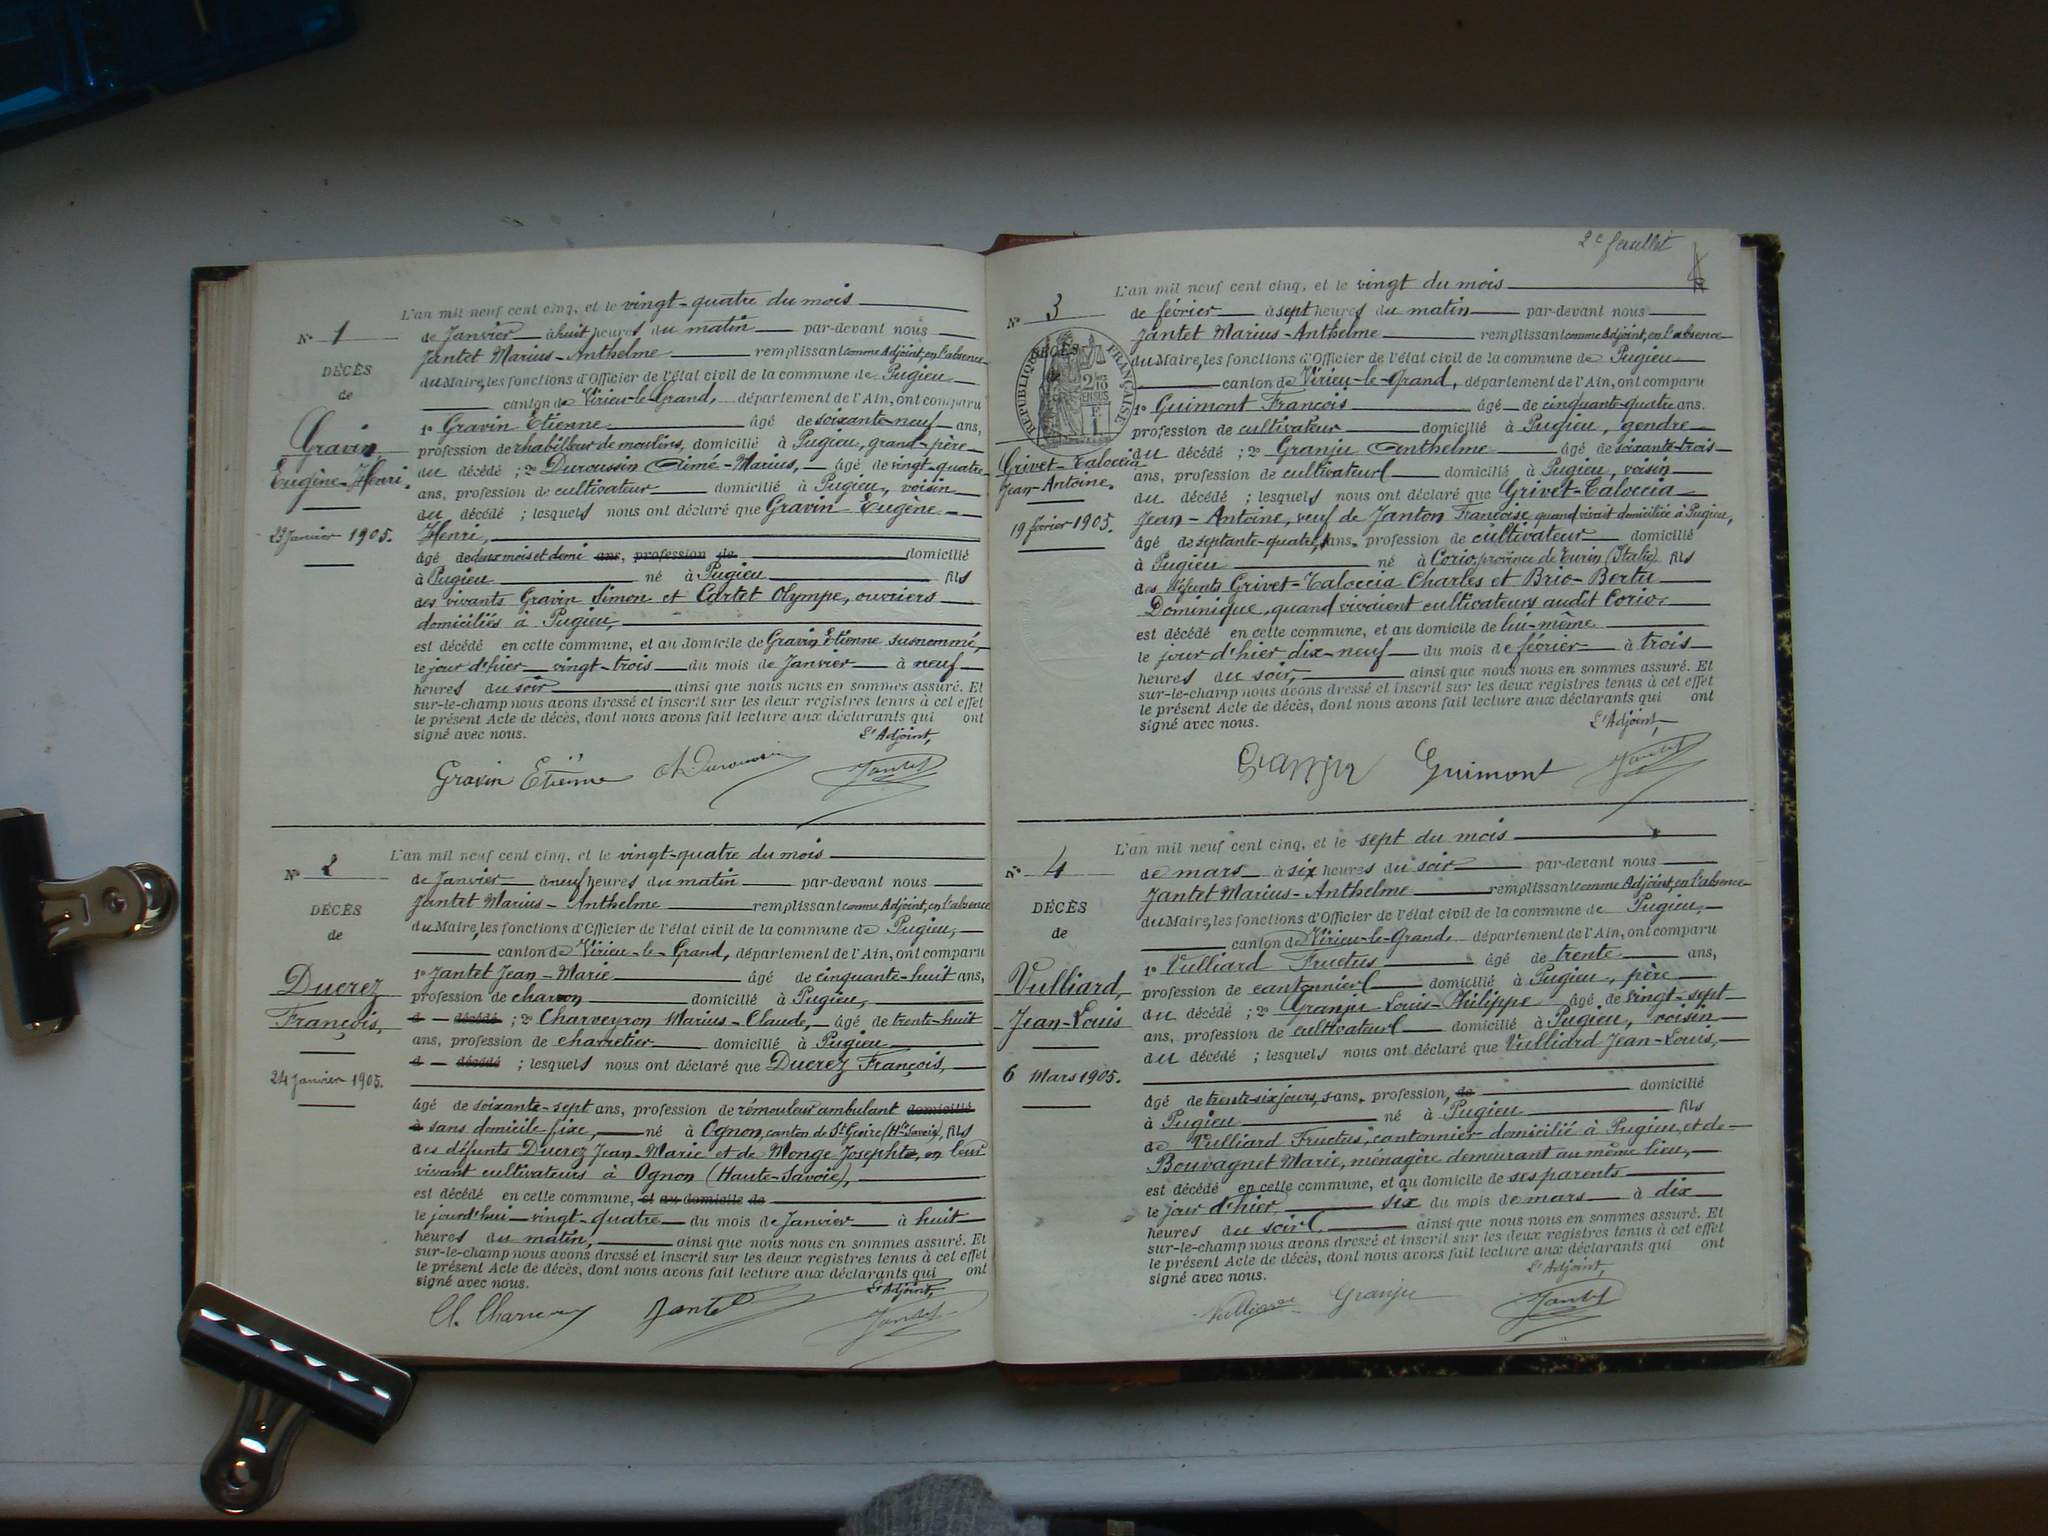 L'an mil neuf cent cinq, et le vingt-quatre du mois
N° 1
de Janvier à huit heures du matin par-devant nous
Jantet Marius-Anthelme remplissant comme Adjoint, en l'absence
DÉCÈS
du Maire, les fonctions d'Officier de l'état civil de la commune de Pugieu
de
canton de Virieu-le-Grand, département de l'Ain, ont comparu
Gravin
Eugène-Henri.
23 Janvier 1905.
1° Gravin Etienne âgé de soixante-neuf ans,
profession de rhabilleur de moulins, domicilié à Pugieu, grand-père
du décédé ; 2° Duroussin Aimé-Marius, âgé de vingt-quatre
ans, profession de cultivateur domicilié à Pugieu, voisin
du décédé ; lesquels nous ont déclaré que Gravin Eugène-
Henri,
âgé de deux mois et demi ans, profession de domicilié
à Pugieu né à Pugieu fils
des vivants Gravin Simon et Cartet Olympe, ouvriers
domiciliés à Pugieu,
est décédé en cette commune, et au domicile de Gravin Etienne susnommé,
le jour d'hier vingt-trois du mois de Janvier à neuf
heures du soir ainsi que nous nous en sommes assuré. Et
sur-le-champ nous avons dressé et inscrit sur les deux registres tenus à cet effet
le présent Acte de décès, dont nous avons fait lecture aux déclarants qui ont
signé avec nous. L'Adjoint,
Gravin Etienne A. Duroussin Jantet
L'an mil neuf cent cinq, et le vingt-quatre du mois
N° 2
de Janvier à neuf heures du matin par-devant nous
Jantet Marius-Anthelme remplissant comme Adjoint, en l'absence
DÉCÈS
du Maire, les fonctions d'Officier de l'état civil de la commune de Pugieu,
de
canton de Virieu-le-Grand, département de l'Ain, ont comparu
Ducrez
François,
24 Janvier 1905.
1° Jantet Jean-Marie âgé de cinquante-huit ans,
profession de charron domicilié à Pugieu,
d décédé ; 2° Charveyron Marius-Claude, âgé de trente-huit
ans, profession de charretier domicilié à Pugieu
d décédé ; lesquels nous ont déclaré que Ducrez François,
âgé de soixante-sept ans, profession de rémouleur ambulant domicilié
à sans domicile fixe, né à Ognon, canton de St Geoire (Hte Savoie), fils
des défunts Ducrez Jean-Marie et de Monge Josephte, en leur
vivant cultivateurs à Ognon (Haute-Savoie),
est décédé en cette commune, et au domicile de
le jourd'hui vingt-quatre du mois de Janvier à huit
heures du matin, ainsi que nous nous en sommes assuré. Et
sur-le-champ nous avons dressé et inscrit sur les deux registres tenus à cet effet
le présent Acte de décès, dont nous avons fait lecture aux déclarants qui ont
signé avec nous. L'Adjoint,
Jantet Jantet
2e feuillet
L'an mil neuf cent cinq, et le vingt du mois
N° 3
de février à sept heures du matin par-devant nous
Jantet Marius-Anthelme remplissant comme Adjoint, en l'absence
DÉCÈS
du Maire, les fonctions d'Officier de l'état civil de la commune de Pugieu
de
canton de Virieu-le-Grand, département de l'Ain, ont comparu
RÉPUBLIQUE FRANÇAISE
Grivet-Taloccia
Jean-Antoine.
19 février 1905.
1° Guimont François âgé de cinquante-quatre ans.
profession de cultivateur domicilié à Pugieu, gendre
du décédé ; 2° Granju Anthelme âgé de soixante-trois
ans, profession de cultivateur domicilié à Pugieu, voisin
du décédé ; lesquels nous ont déclaré que Grivet-Taloccia
Jean-Antoine, veuf de Janton Françoise, quand vivait domiciliée à Pugieu,
âgé de septante-quatre ans, profession de cultivateur domicilié
à Pugieu né à Corio, province de Turin (Italie) fils
des défunts Grivet-Taloccia Charles et Brio-Bertu
Dominique, quand vivaient cultivateurs audit Corio,
est décédé en cette commune, et au domicile de lui-même
le jour d'hier dix-neuf du mois de février à trois
heures du soir, ainsi que nous nous en sommes assuré. Et
sur-le-champ nous avons dressé et inscrit sur les deux registres tenus à cet effet
le présent Acte de décès, dont nous avons fait lecture aux déclarants qui ont
signé avec nous. L'Adjoint,
Granju Guimont Jantet
L'an mil neuf cent cinq, et le sept du mois
N° 4
de mars à six heures du soir par-devant nous
Jantet Marius-Anthelme remplissant comme Adjoint, en l'absence
DÉCÈS
du Maire, les fonctions d'Officier de l'état civil de la commune de Pugieu,
de
canton de Virieu-le-Grand, département de l'Ain, ont comparu
Vulliard,
Jean-Louis
6 Mars 1905.
1° Vulliard Fructus âgé de trente ans,
profession de cantonnier domicilié à Pugieu, père
du décédé ; 2° Granju Louis-Philippe âgé de vingt-sept
ans, profession de cultivateur domicilié à Pugieu, voisin
du décédé ; lesquels nous ont déclaré que Vulliard Jean-Louis,
âgé de trente-six jours, sans profession, de domicilié
à Pugieu né à Pugieu fils
de Vulliard Fructus, cantonnier domicilié à Pugieu, et de
Bouvagnet Marie, ménagère demeurant au même lieu,
est décédé en cette commune, et au domicile de ses parents
le jour d'hier six du mois de mars à dix
heures du soir ainsi que nous nous en sommes assuré. Et
sur-le-champ nous avons dressé et inscrit sur les deux registres tenus à cet effet
le présent Acte de décès, dont nous avons fait lecture aux déclarants qui ont
signé avec nous. L'Adjoint,
Vulliard Granju Jantet